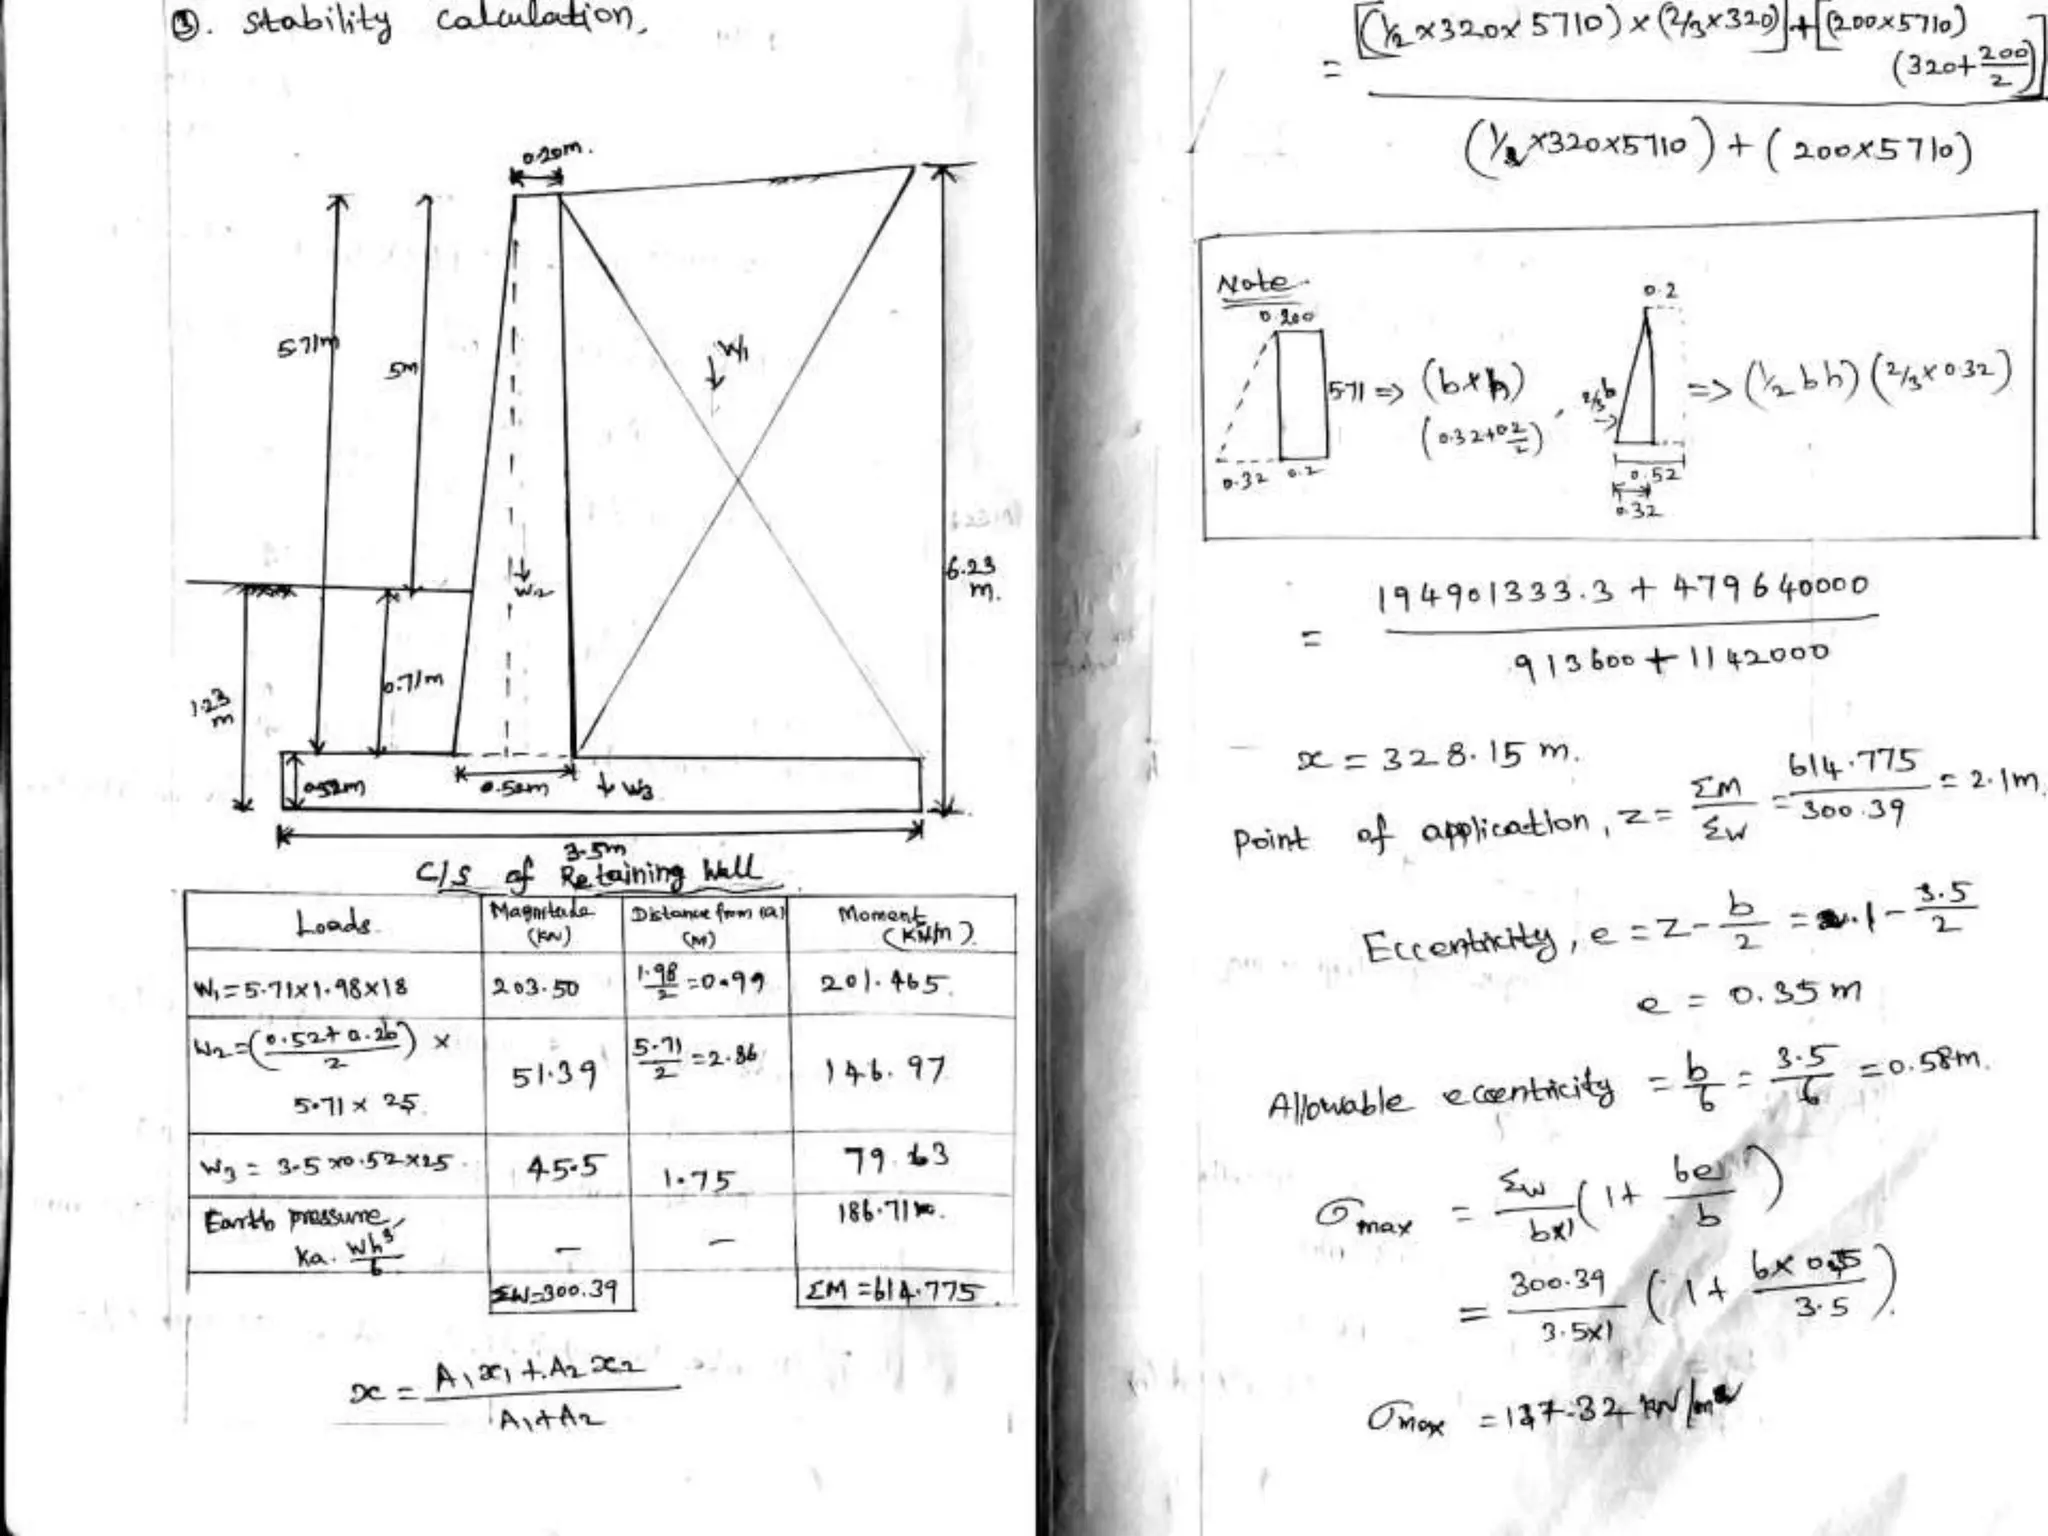 ③. Stability calculation,
0.20m.
5.71m
5m
W1
W2
6.23
m.
0.71m
1.23
m
0.52m
0.52m
W3
3.5m
C/s of Retaining Wall
Loads. Magnitude (KN) Distance from (a) (M) Moment (KN/m).
W1=5.71x1.98x18 203.50 1.98/2 =0.99 201.465.
W2=(0.52+0.26/2) x 5.71 x 25. 51.39 5.71/2 =2.86 146.97
W3 = 3.5x0.52x25. 45.5 1.75 79.63
Earth pressure, Ka. Wh³/6 – – 186.71
ΣW=300.39 ΣM =614.775
x = A1x1+A2x2 / A1+A2
= [(1/2 x320x 5710) x (2/3x320)]+[(200x5710) (320+200/2)]
(1/2x320x5710) + (200x5710)
Note.
0.200
5.71 => (bxh)
(0.32+0.2/2)
0.32 0.2
0.2
2/3b
=> (1/2 bh) (2/3x0.32)
0.52
0.32
= 194901333.3 + 479640000
913600+1142000
x = 328.15 m.
Point of application, z= ΣM/ΣW = 614.775/300.39 = 2.1m.
Eccentricity, e = z- b/2 = 2.1- 3.5/2
e = 0.35 m
Allowable eccentricity = b/6 = 3.5/6 =0.58m.
σmax = Σw/bx1 (1+ 6e/b)
= 300.39/3.5x1 (1+ 6x0.35/3.5).
σmax = 137.32 kN/m²